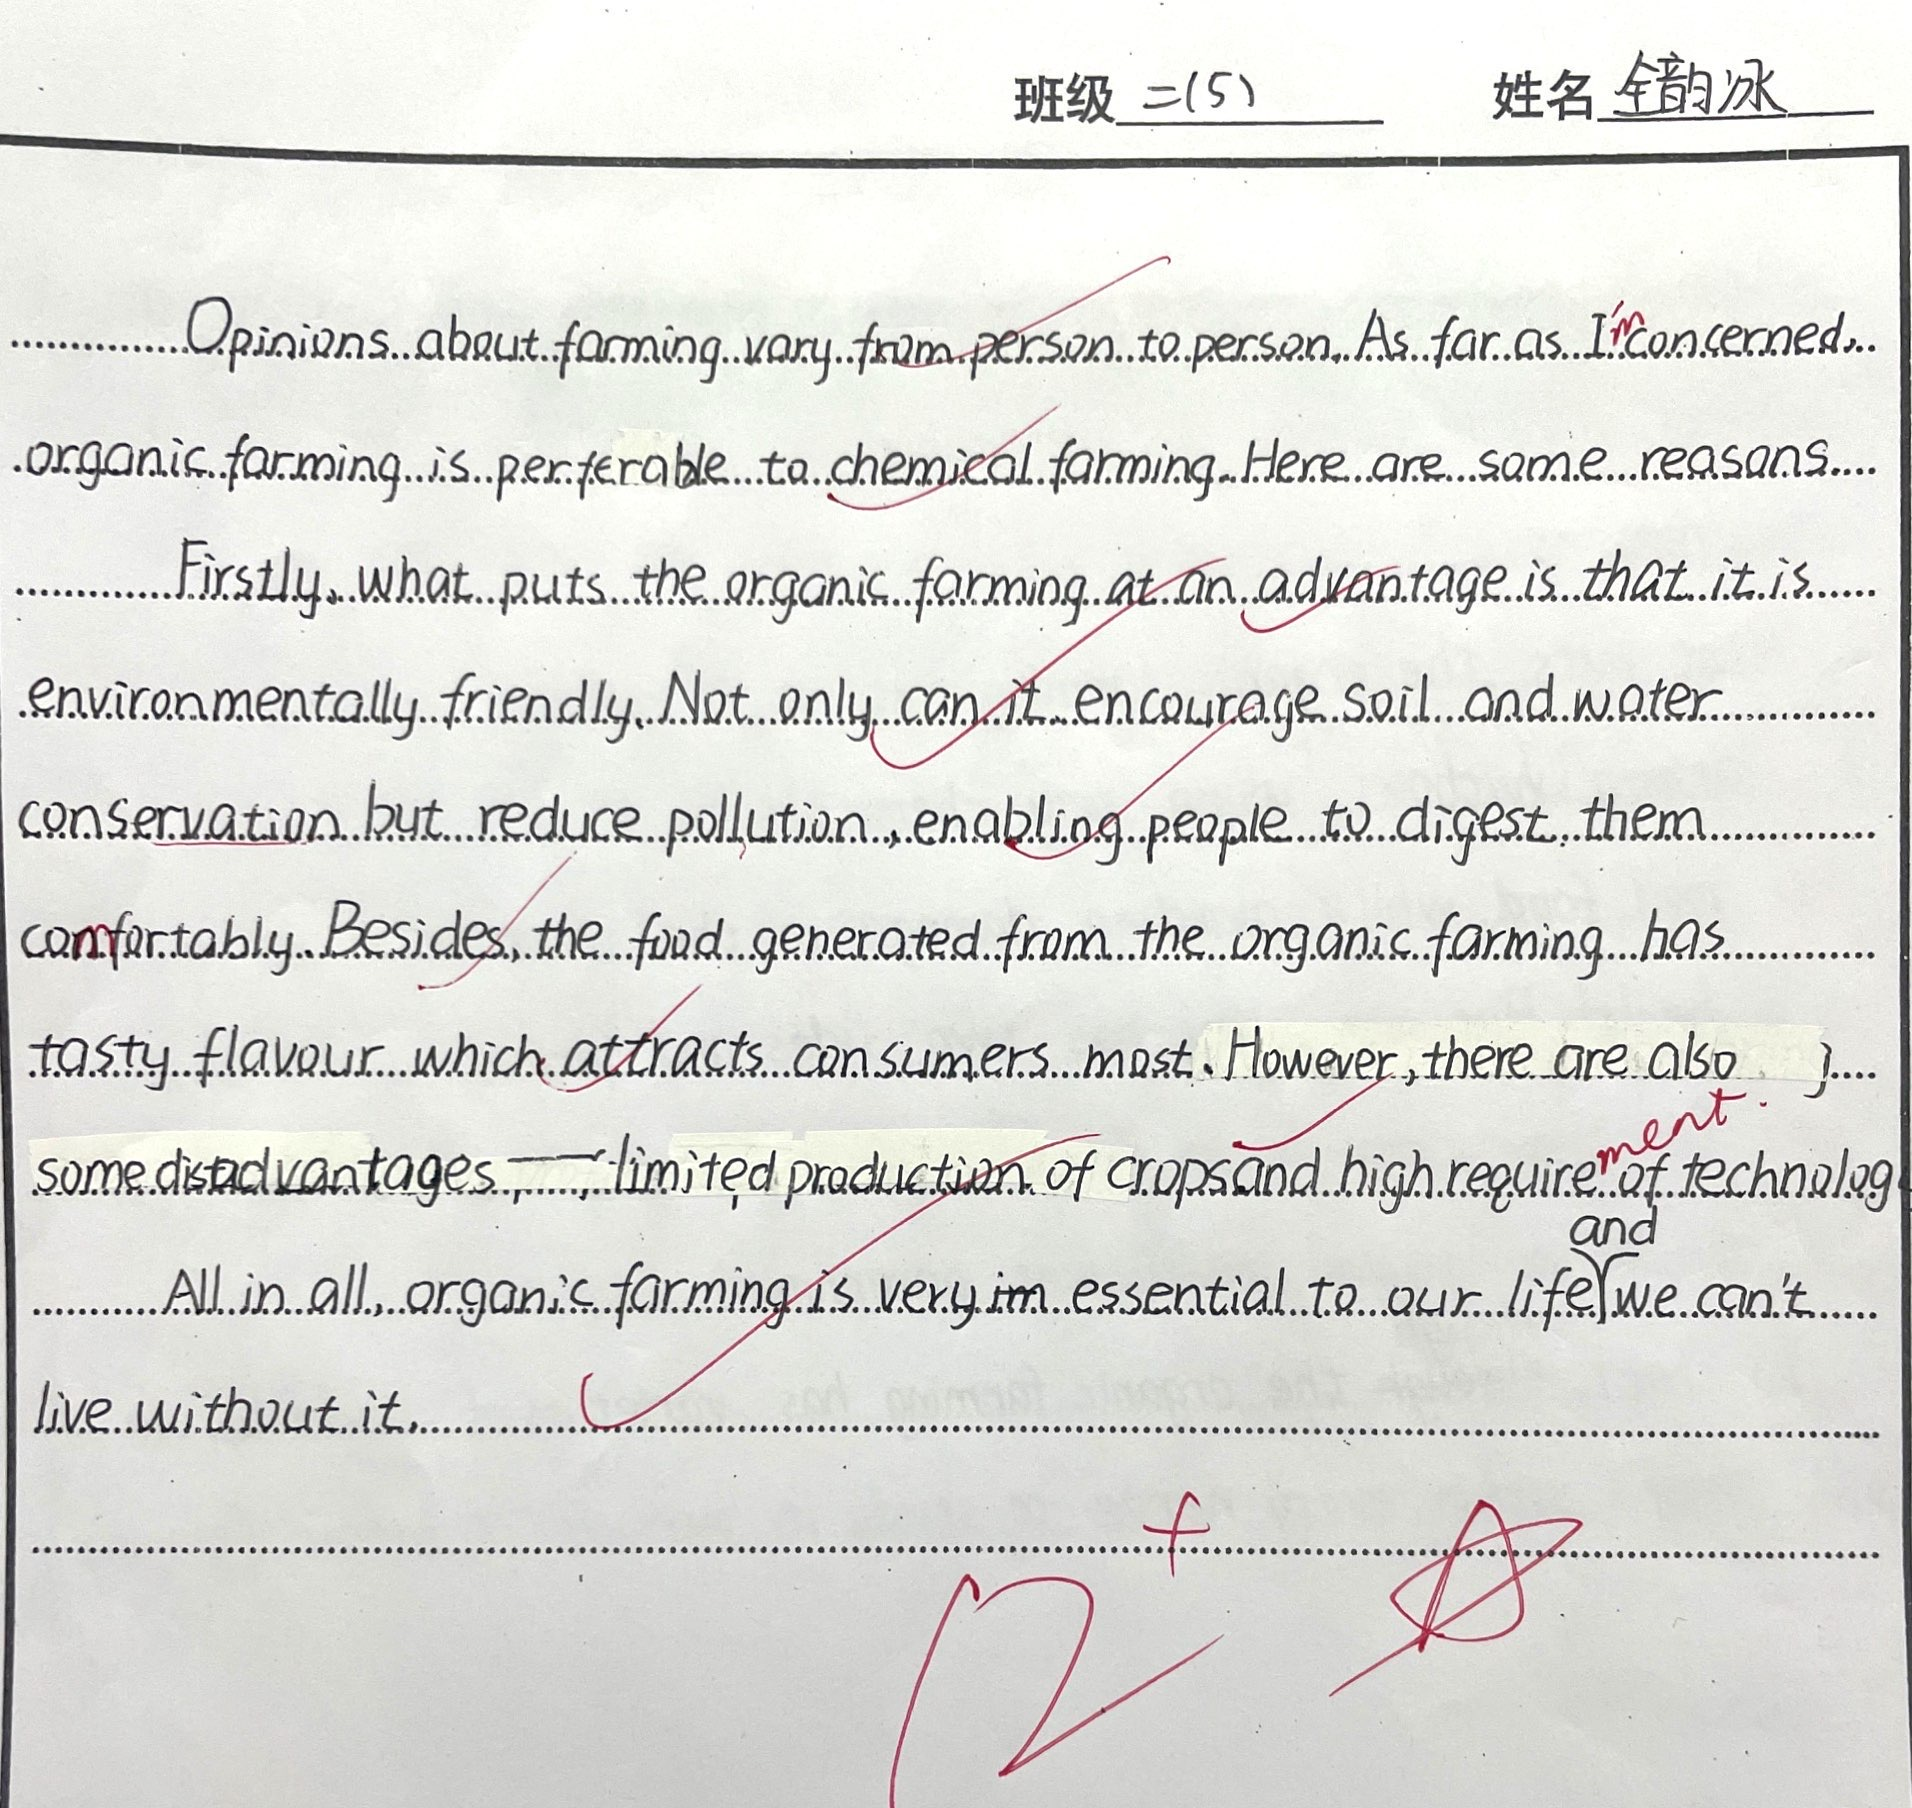 班级 二(5) 姓名 全韵冰
Opinions about farming vary from person to person. As far as I'm concerned,
organic farming is perferable to chemical farming. Here are some reasons.
Firstly, what puts the organic farming at an advantage is that it is
environmentally friendly. Not only can it encourage soil and water
conservation but reduce pollution, enabling people to digest them
comfortably. Besides, the food generated from the organic farming has
tasty flavour which attracts consumers most. However, there are also
some disadvantages —— limited production of crops and high requirement of technolog
and
All in all, organic farming is very essential to our life we can't
live without it.
12+